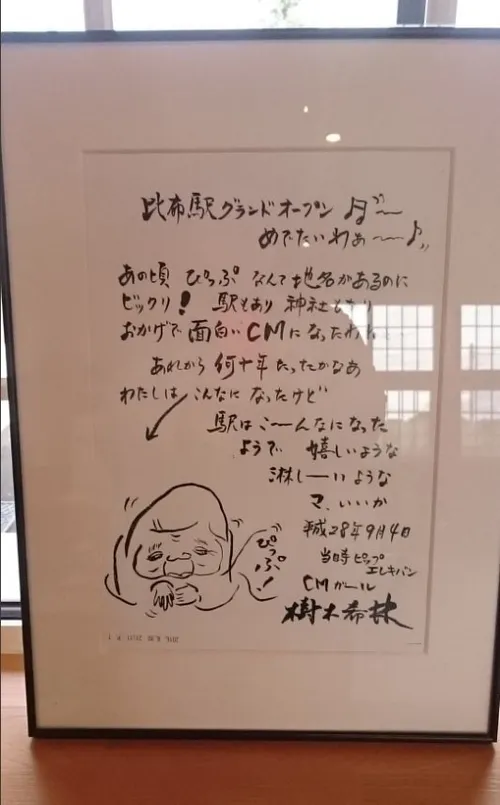 比布駅グランドオープン ♬〜
めでたいわぁ〜〜♪
あの頃 ぴっぷ なんて地名があるのに
ビックリ! 駅もあり 神社もあり
おかげで 面白いCMになったわ
あれから 何十年たったかなあ
わたしは こんなに なったけど
駅は こ〜んなになった
ようで 嬉しいような
淋しーいような
マ、いいか
平成28年9月4日
当時ピップ
エレキバン
CMガール
樹木希林
ぴっぷ!